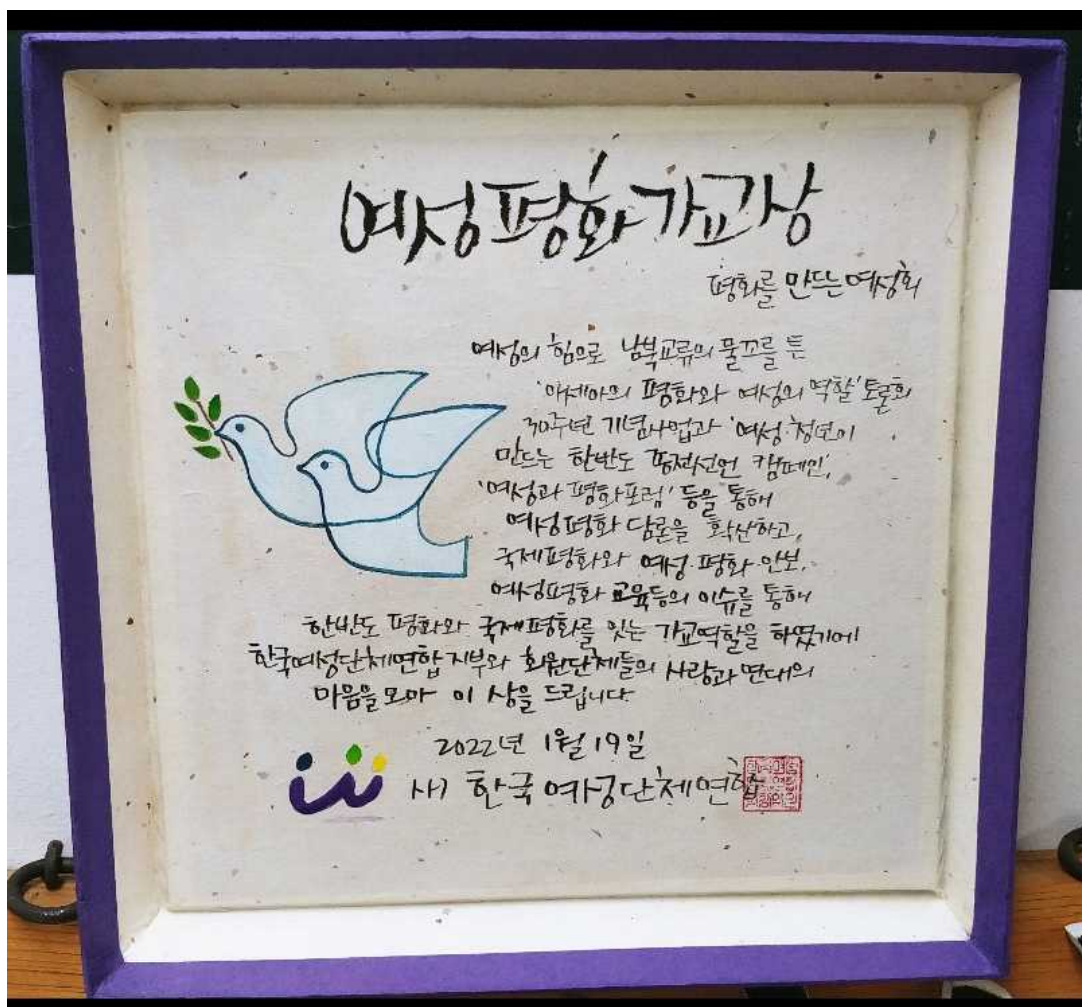 여성평화가교상
평화를 만드는 여성회
여성의 힘으로 남북교류의 물꼬를 튼
'아세아의 평화와 여성의 역할' 토론회
30주년 기념사업과 '여성·청년이
만드는 한반도 종전선언 캠페인',
'여성과 평화포럼' 등을 통해
여성평화 담론을 확산하고,
국제평화와 여성·평화·안보,
여성평화 교육등의 이슈를 통해
한반도 평화와 국제평화를 잇는 가교역할을 하였기에
한국여성단체연합 지부와 회원단체들의 사랑과 연대의
마음을 모아 이 상을 드립니다.
2022년 1월 19일
사) 한국여성단체연합